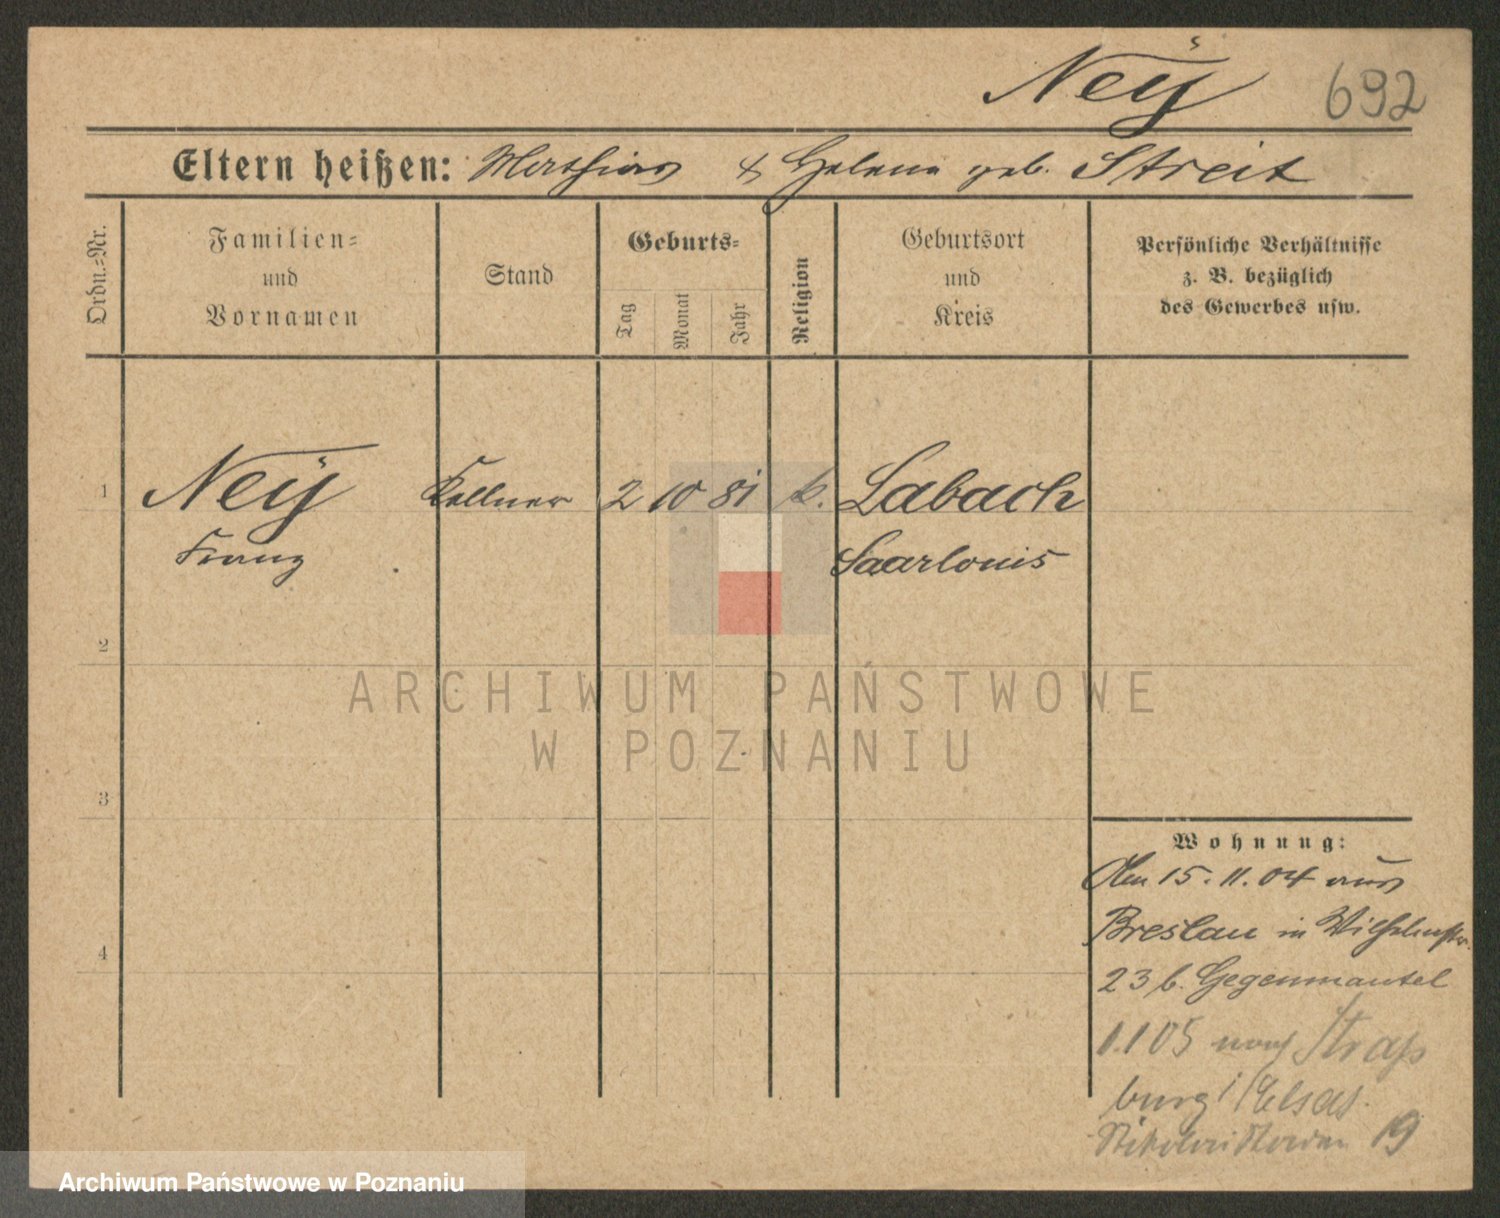 Neÿ 692
Eltern heißen: Mathias & Helene geb. Streit
Ordn.-Nr.
Familien-
und
Vornamen
Stand
Geburts-
Tag
Monat
Jahr
Religion
Geburtsort
und
Kreis
Persönliche Verhältnisse
z. B. bezüglich
des Gewerbes usw.
1 Neÿ Kellner 2 10 81 k. Labach
Franz Saarlouis
2
3
4
Wohnung:
Am 15. 11. 04 aus
Breslau in Wilhelmstr.
23 b. Gegenmantel
1.1 05 nach Straß
burg i/Elsas.
19
ARCHIWUM PAŃSTWOWE
W POZNANIU
Archiwum Państwowe w Poznaniu